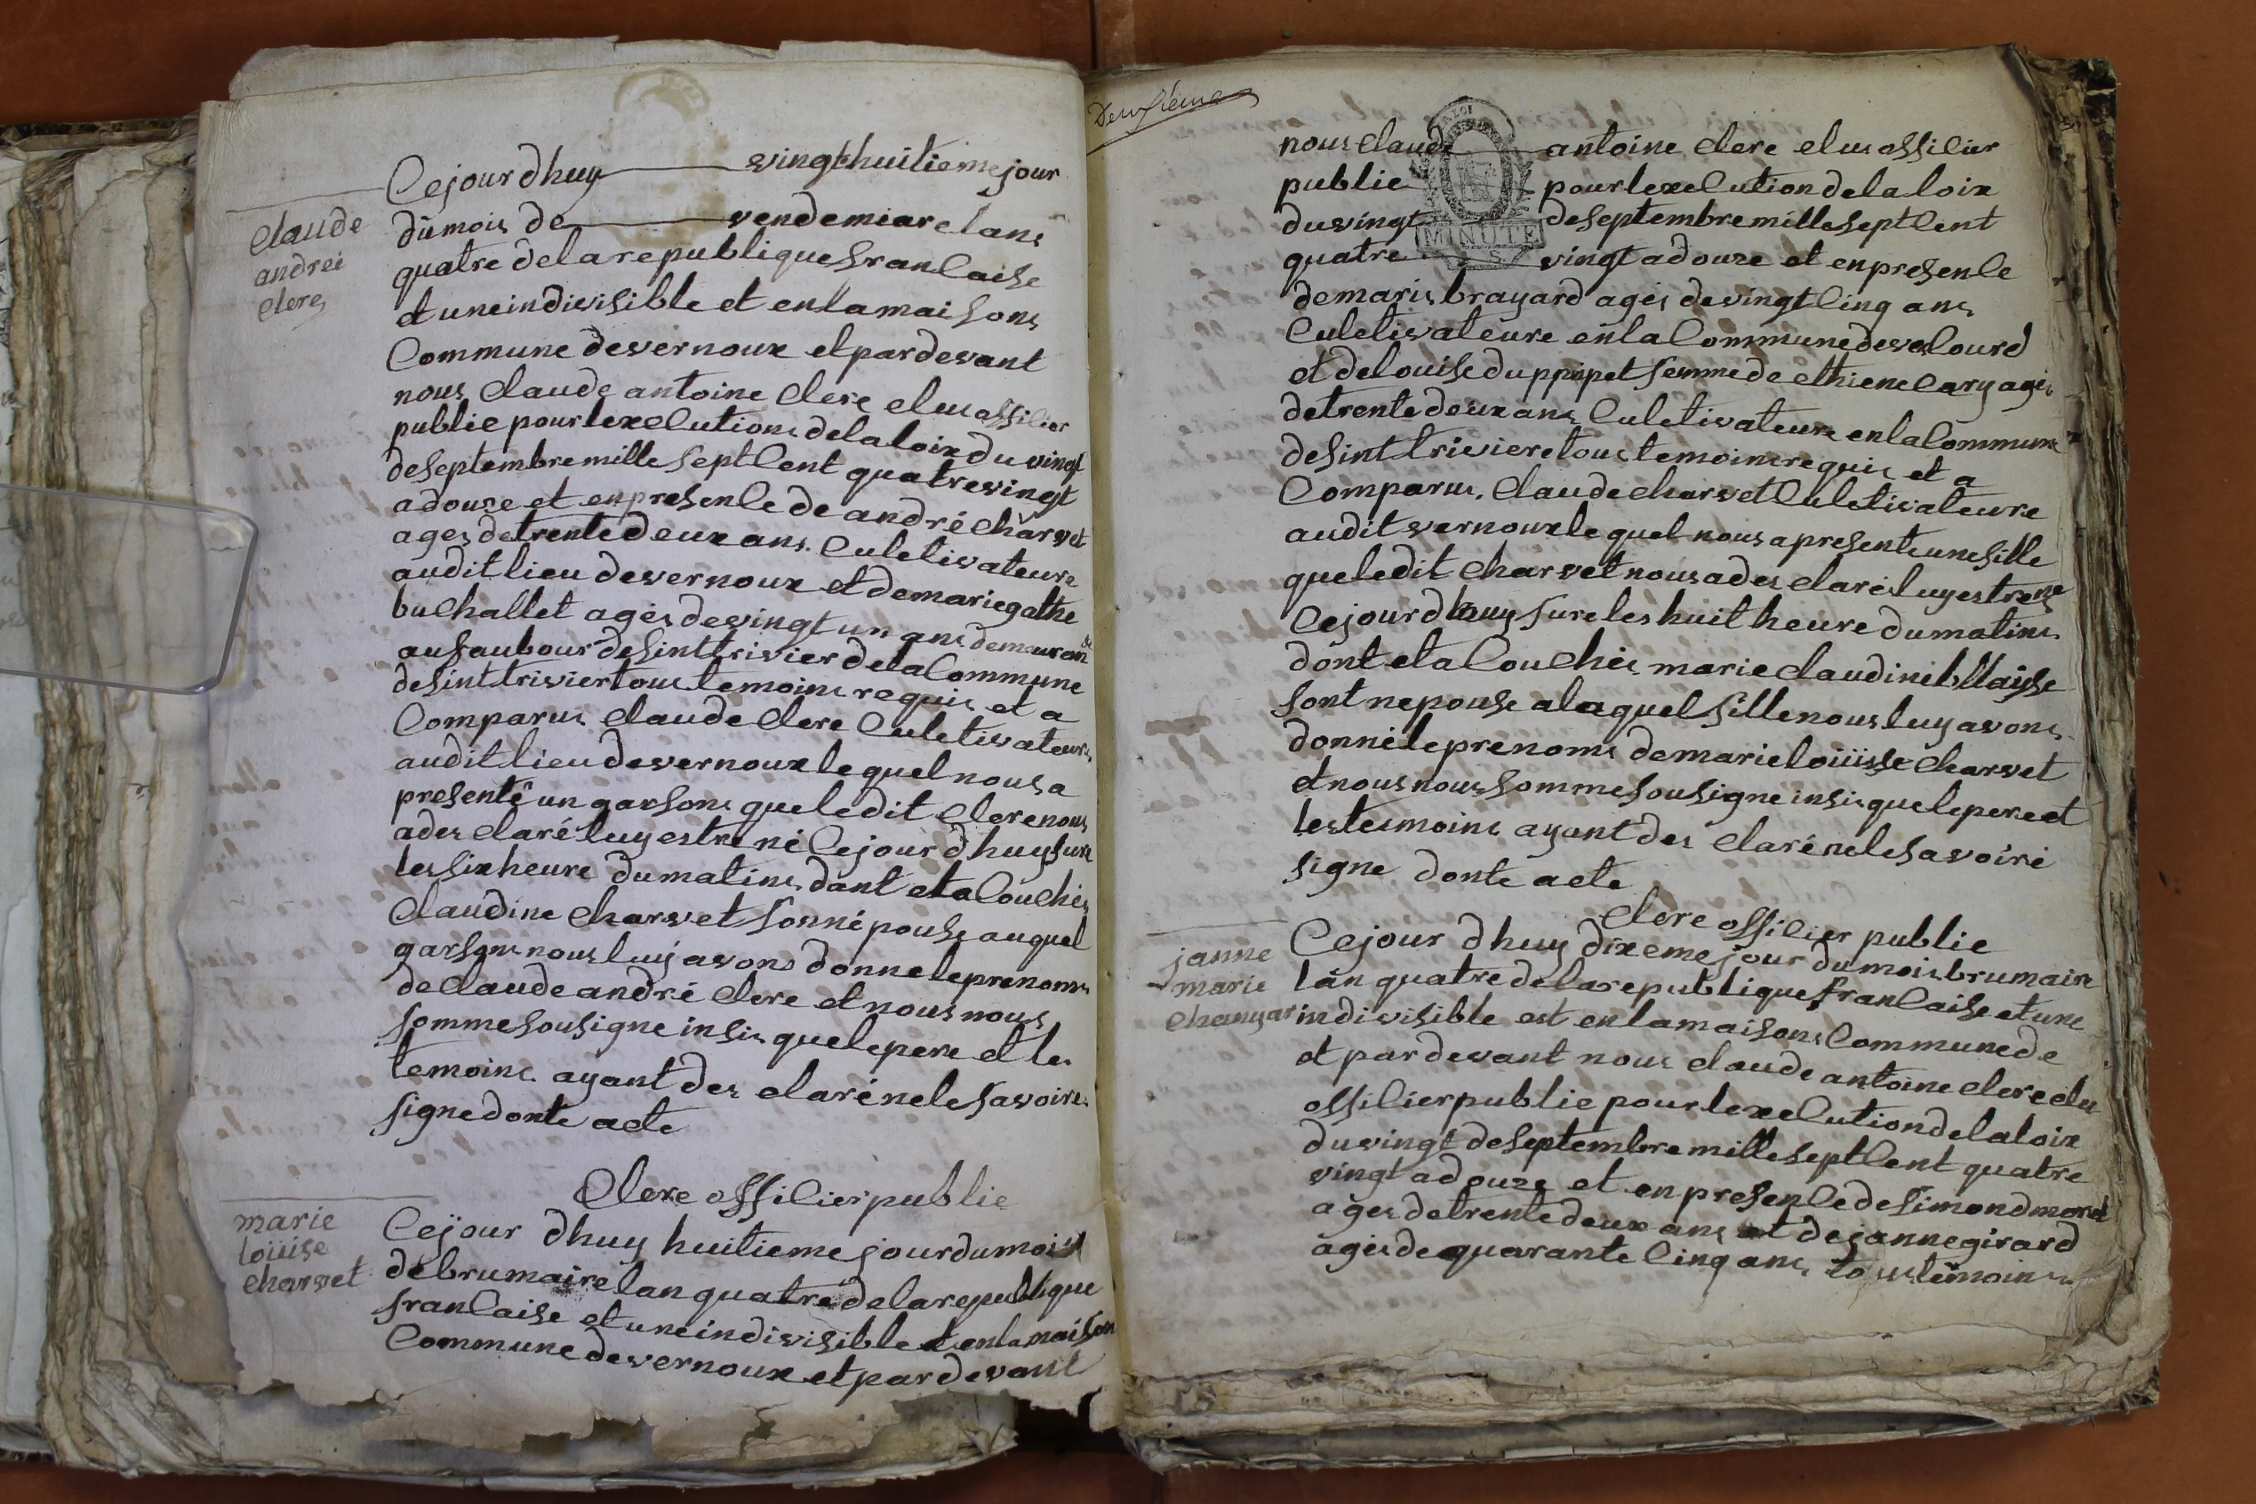 claude
andrei
clerc
Cejourdhuy vingthuitieme jour
du mois de vendemiare lans
quatre delarepubliquefrancaise
et uneindivisible et enlamaisons
Commune devernoux etpardevant
nous claude antoine clerc elus officier
public pourlexecutions delaloix du vingt
deseptembremille septcent quatrevingt
adouze et enpresence de andré charvet
ages detrentedeux ans. culetivateure
auditlieu devernoux et demarie gathe
buchallet agés devingt un ans demeuran
aufaubour desinttrivier delacommune
desinttriviertous temoins requis et a
comparus claude clerc culetivateure
auditlieu devernoux lequel nous a
presenté un garsons queledit clerc nous
ades claré luy estre né cejour dhuy sure
les six heure dumatins dont etacouchés
claudine charvet sonnépouse auquel
garsons nous luy avons donneleprenoms
declaude andré clerc et nous nous
sommesousigne insis quelepere et les
temoins ayant des clarénelesavoire
signe donte acte
clerc officier public
marie
loüise
charvet
Cejour dhuy huitieme jour dumois
debrumaire lan quatre delarepublique
francaise et uneindivisible et enlamaison
commune devernoux et pardevant
Deuxième
nous claude antoine clerc elus officier
public pourlexecution delaloix
du vingt deseptembremilleseptcent
quatre vingt adouze et enpresence
MINUTE
demaris brayard agés devingtcinq ans
culetivateure enla commune devescourd
et delouise duppupet femme de ethiene cary agés
detrente deux ans culetivateure enlacommune
desinttriviere tous temoins requis et a
comparus. claude charvet culetivateure
audit vernoux lequel nous a presente unefille
queledit charvet nous ades claré luy estre née
cejourdhuy sure les huit heure dumatins
dont etacouchés marie claudine bllayse
sont nepouse alaquel fille nous luy avons
donné leprenoms demarie loüisse charvet
et nous nous somme sousigne insis quelepere et
les tesmoins ayant des clarénelesavoire
signe donte acte
clerc officier public
janne
marie
changar
Cejour dhuy dixeme jour du mois brumaire
lan quatre delarepublique francaise et une
indivisible est enlamaisons commune de
et par devant nous claude antoine clerc elu
officier public pour lexecution delaloix
du vingt deseptembre mille septcent quatre
vingt adouze et enpresence desimond morel
ages detrentedeux ans et dejannegirard
agés dequarante cinq ans tous temoins